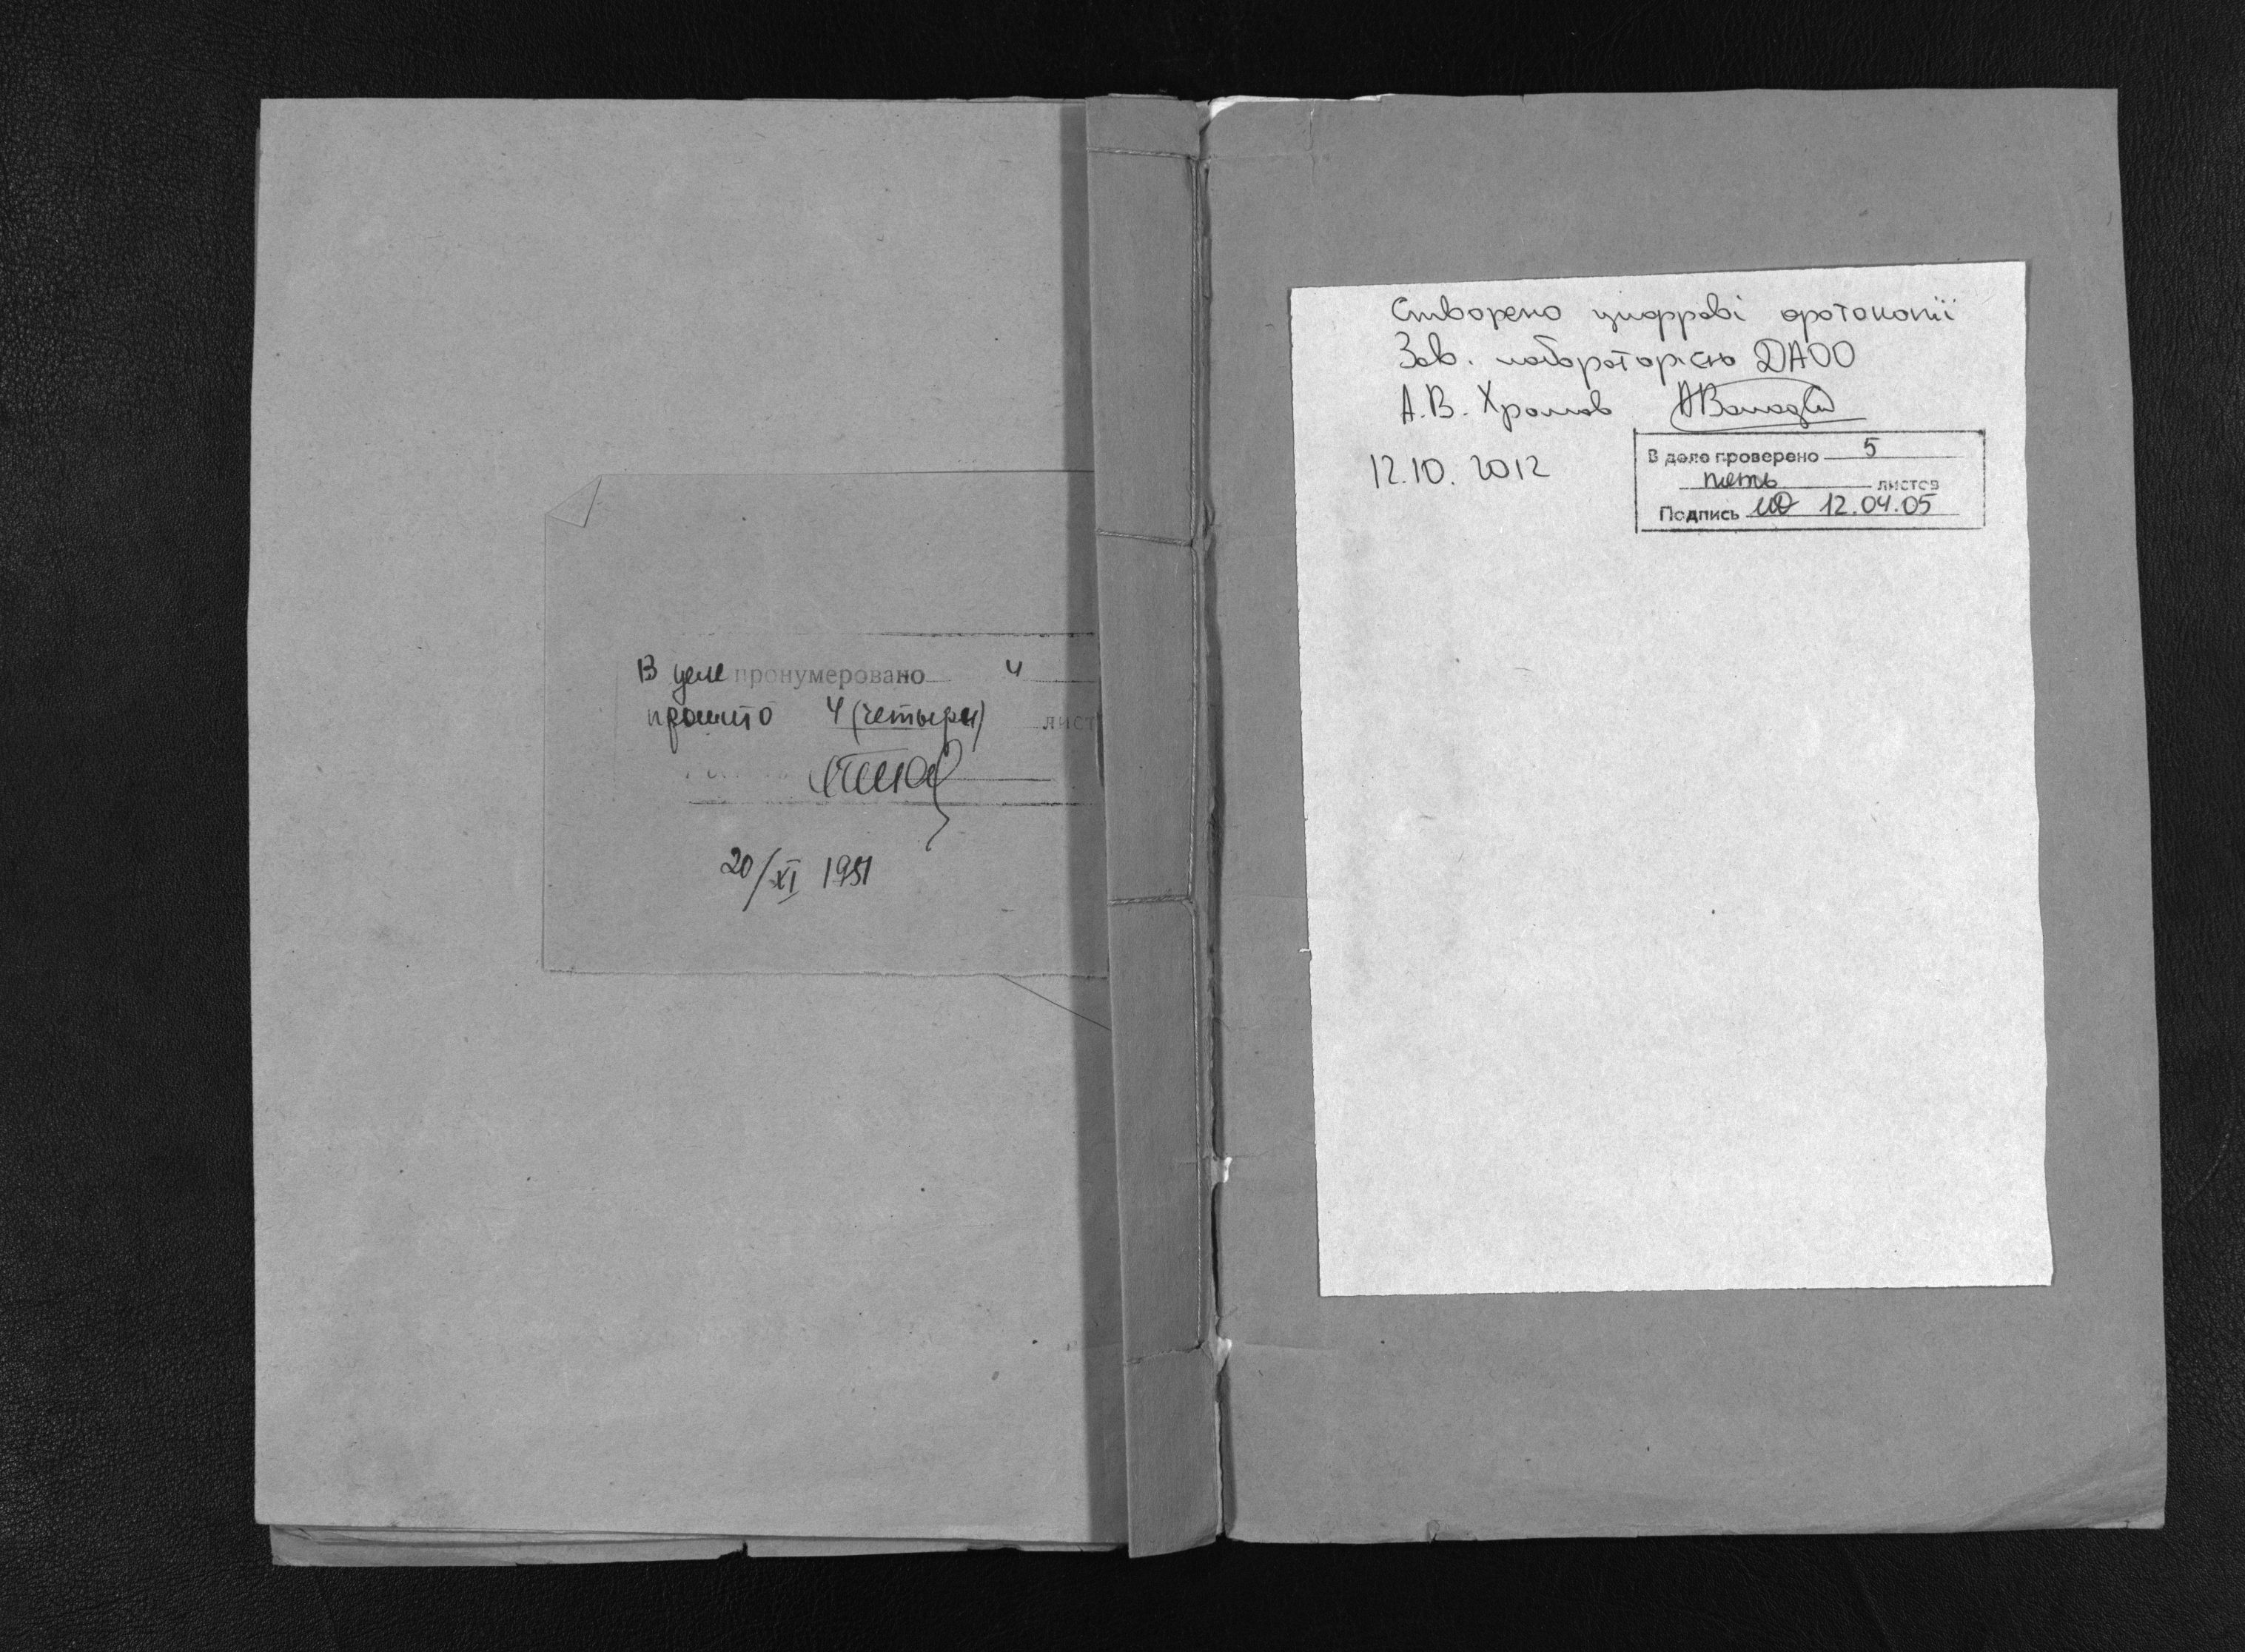 В деле пронумеровано 4
прошито 4 (четыри) лист
20/XI 1951
Створено цифрові фотокопії
Зав. лабораторією ДАОО
А.В. Хромов
12.10.2012
В деле проверено 5
пять листов
Подпись 12.04.05